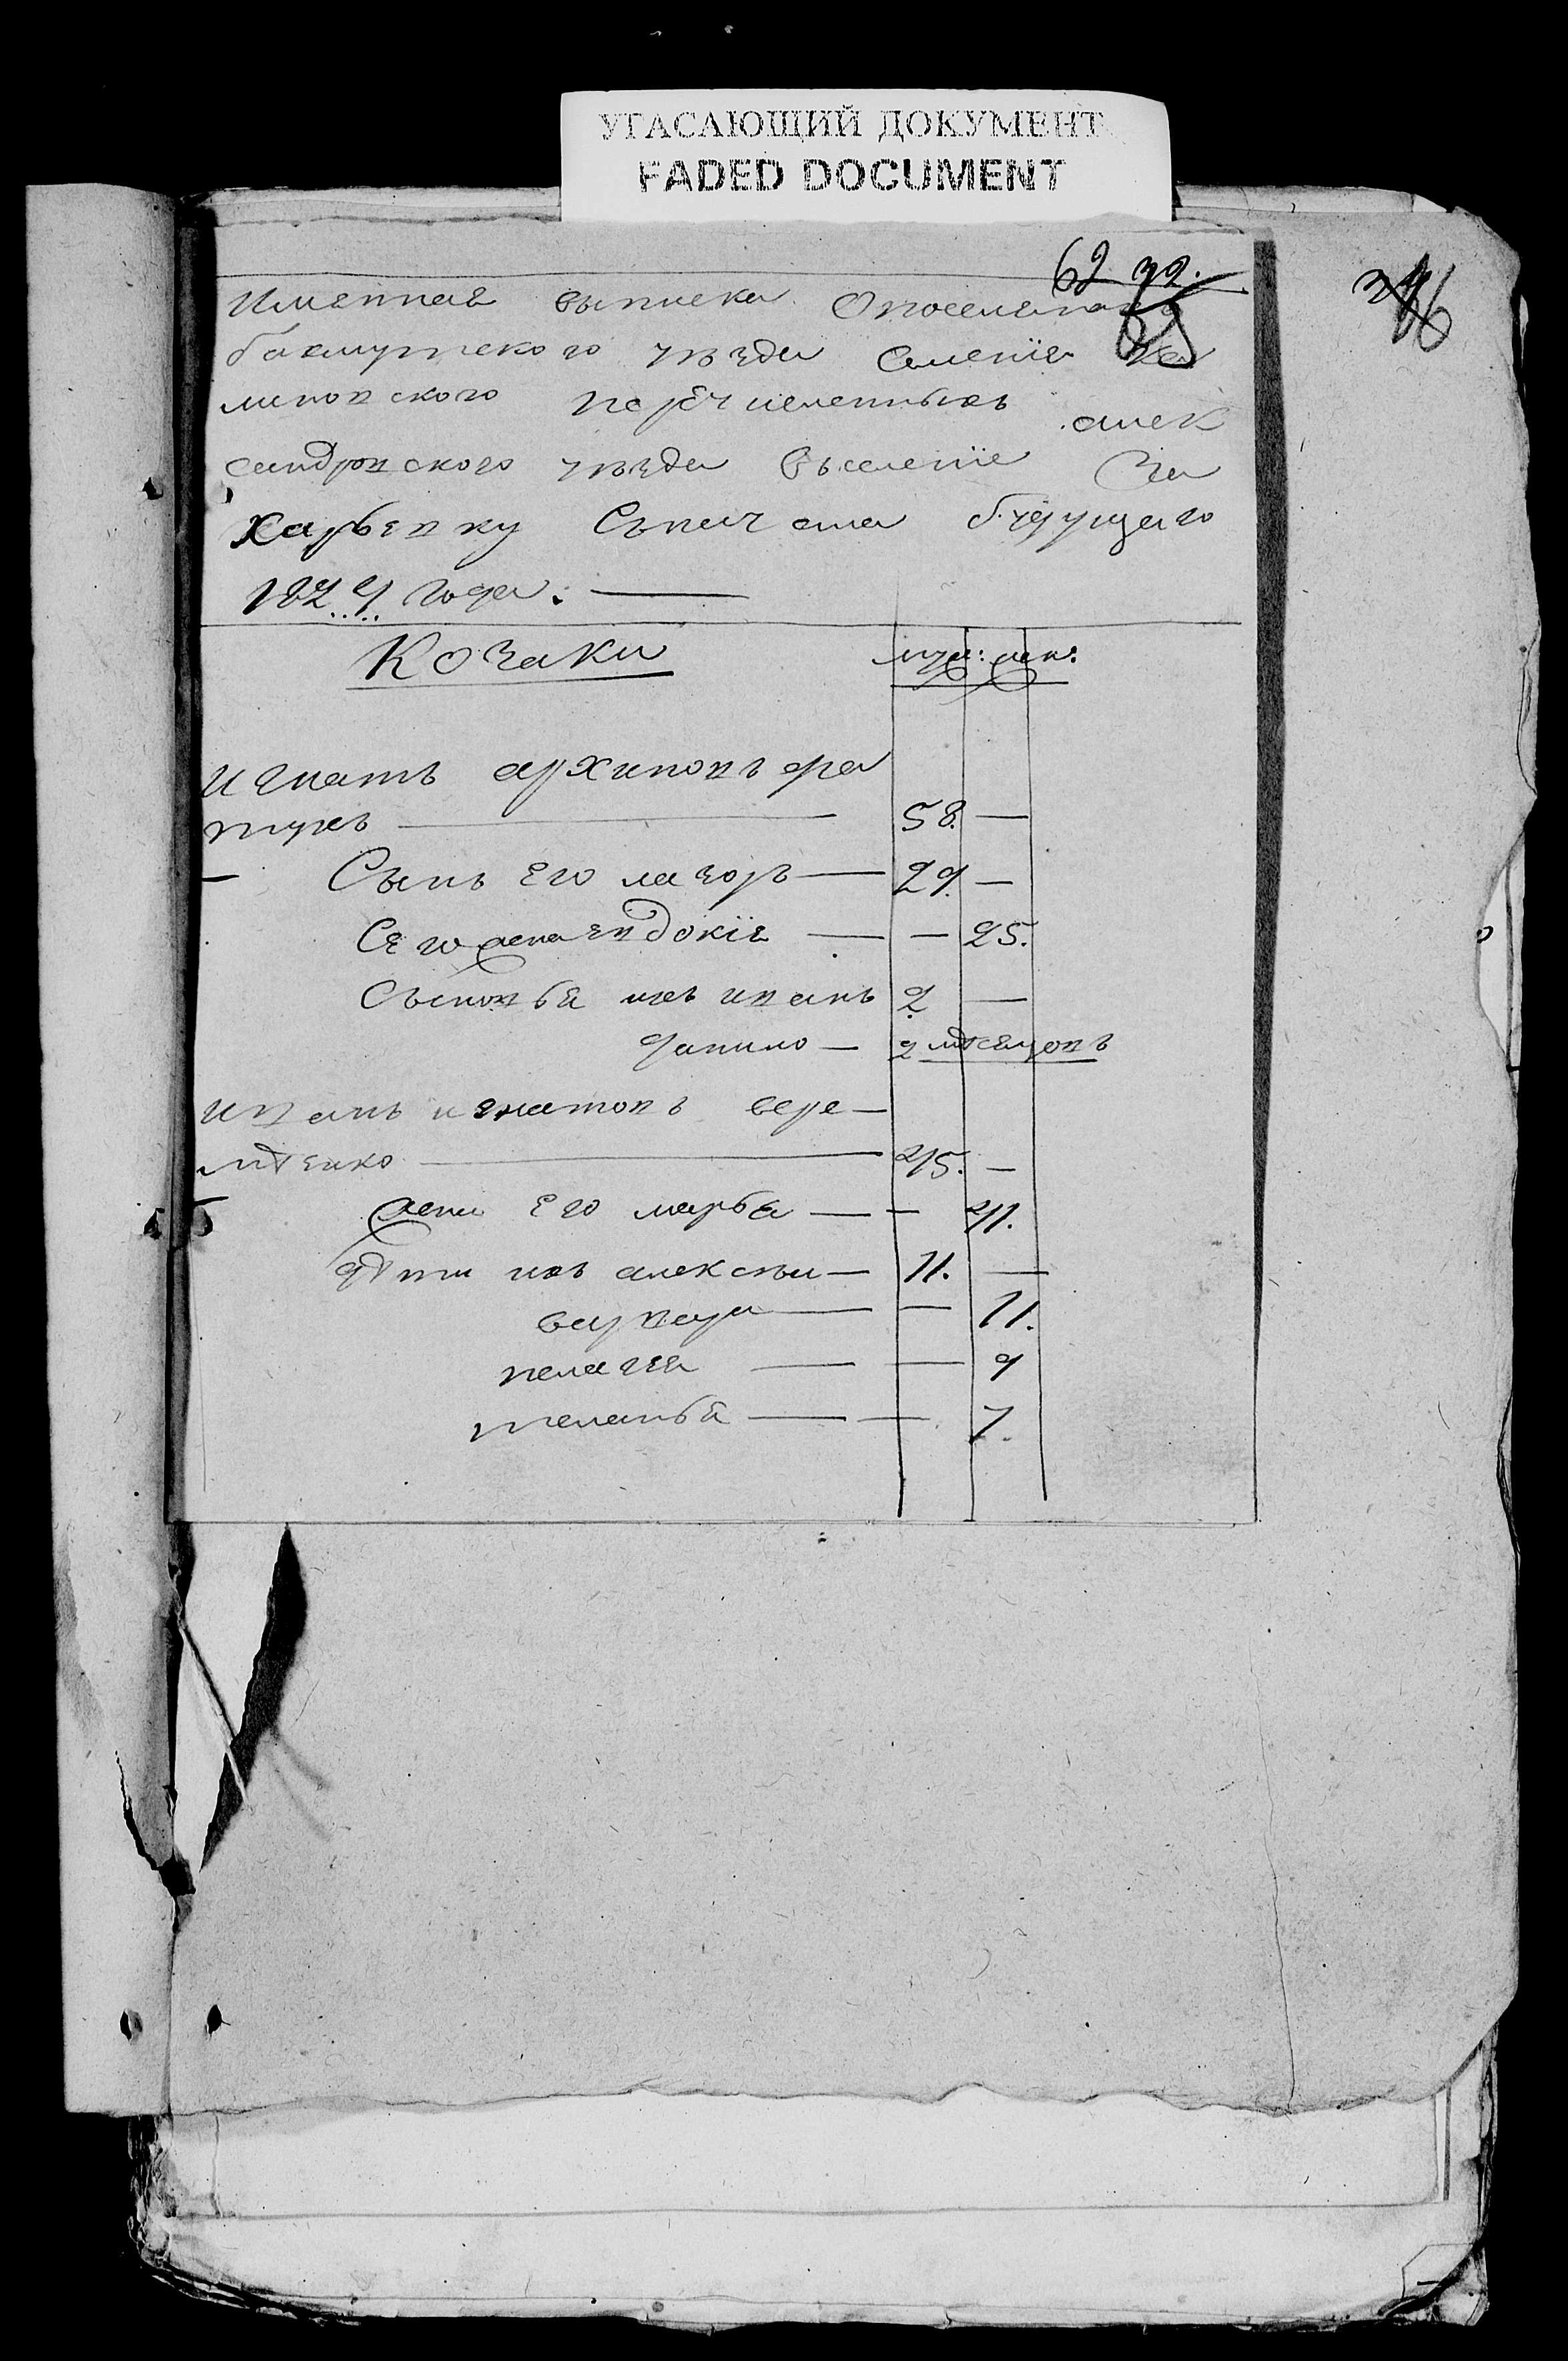 УГАСАЮЩИЙ ДОКУМЕНТ
FADED DOCUMENT
62 32.
Имянная выписка опоселянахъ
бахмутского уѣзда селенія Ка
линовского перечисленныхъ алек
сандровского уѣзда въселеніе За
харьевку Съначала будущаго
1829 года. —
Козаки муж: жен:
игнатъ архиповъ ора
тухъ — 58. —
— Сынъ Его лазоръ — 29. —
Сего жена Евдокія — — 25.
Сыновья ихъ иванъ 2 —
данило — 2 мѣсяцовъ
иванъ игнатовъ вере—
мѣенко — 45. —
жена Его марья — — 41.
дѣти ихъ алексѣи — 11. —
варвара — — 11.
пелагея — — 9
меланья — — 7.